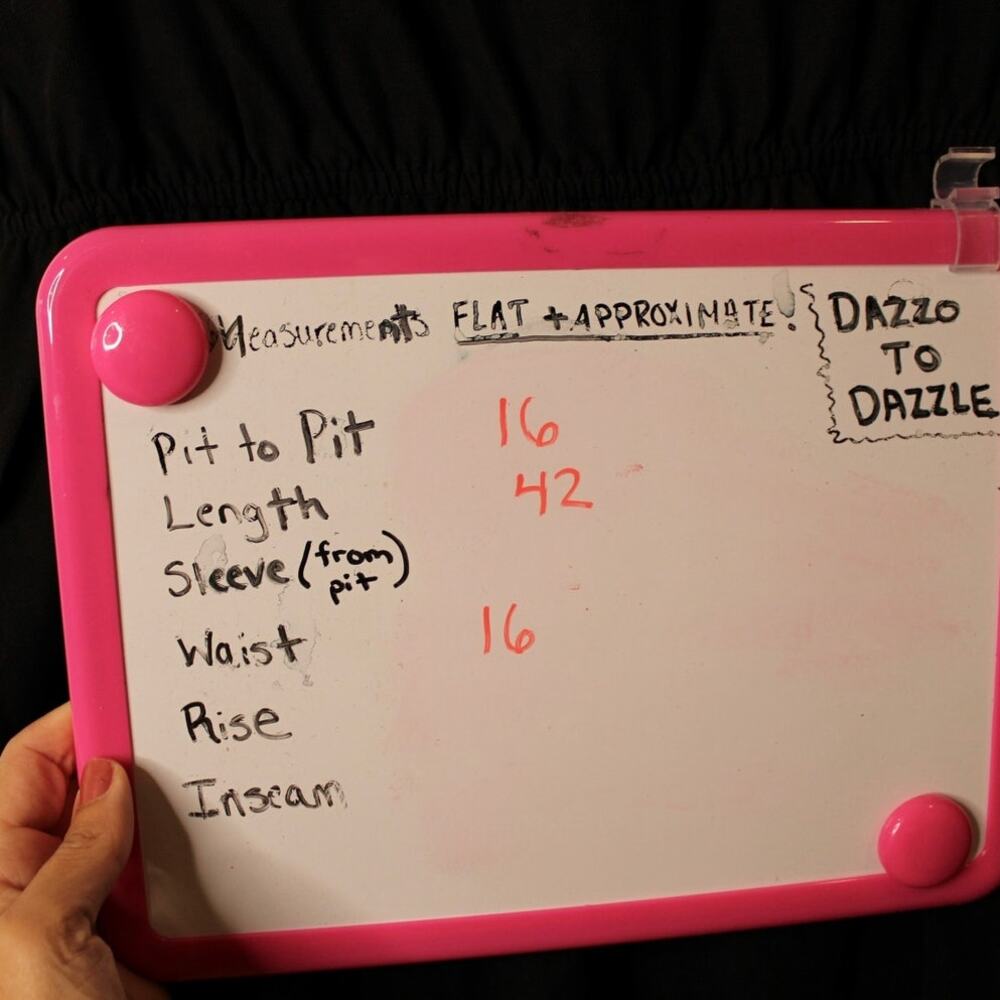 Measurements FLAT + APPROXIMATE!
DAZZO
TO
DAZZLE
Pit to Pit 16
Length 42
Sleeve (from pit)
Waist 16
Rise
Inseam